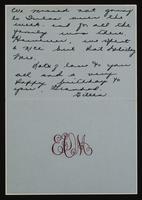 We missed not going
to Dubas over the
week end for all the
family was there.
However, we spent
a nice but hot
Mrs.
Lots of love to you
all and a very
Happy birthday to
your
EDM